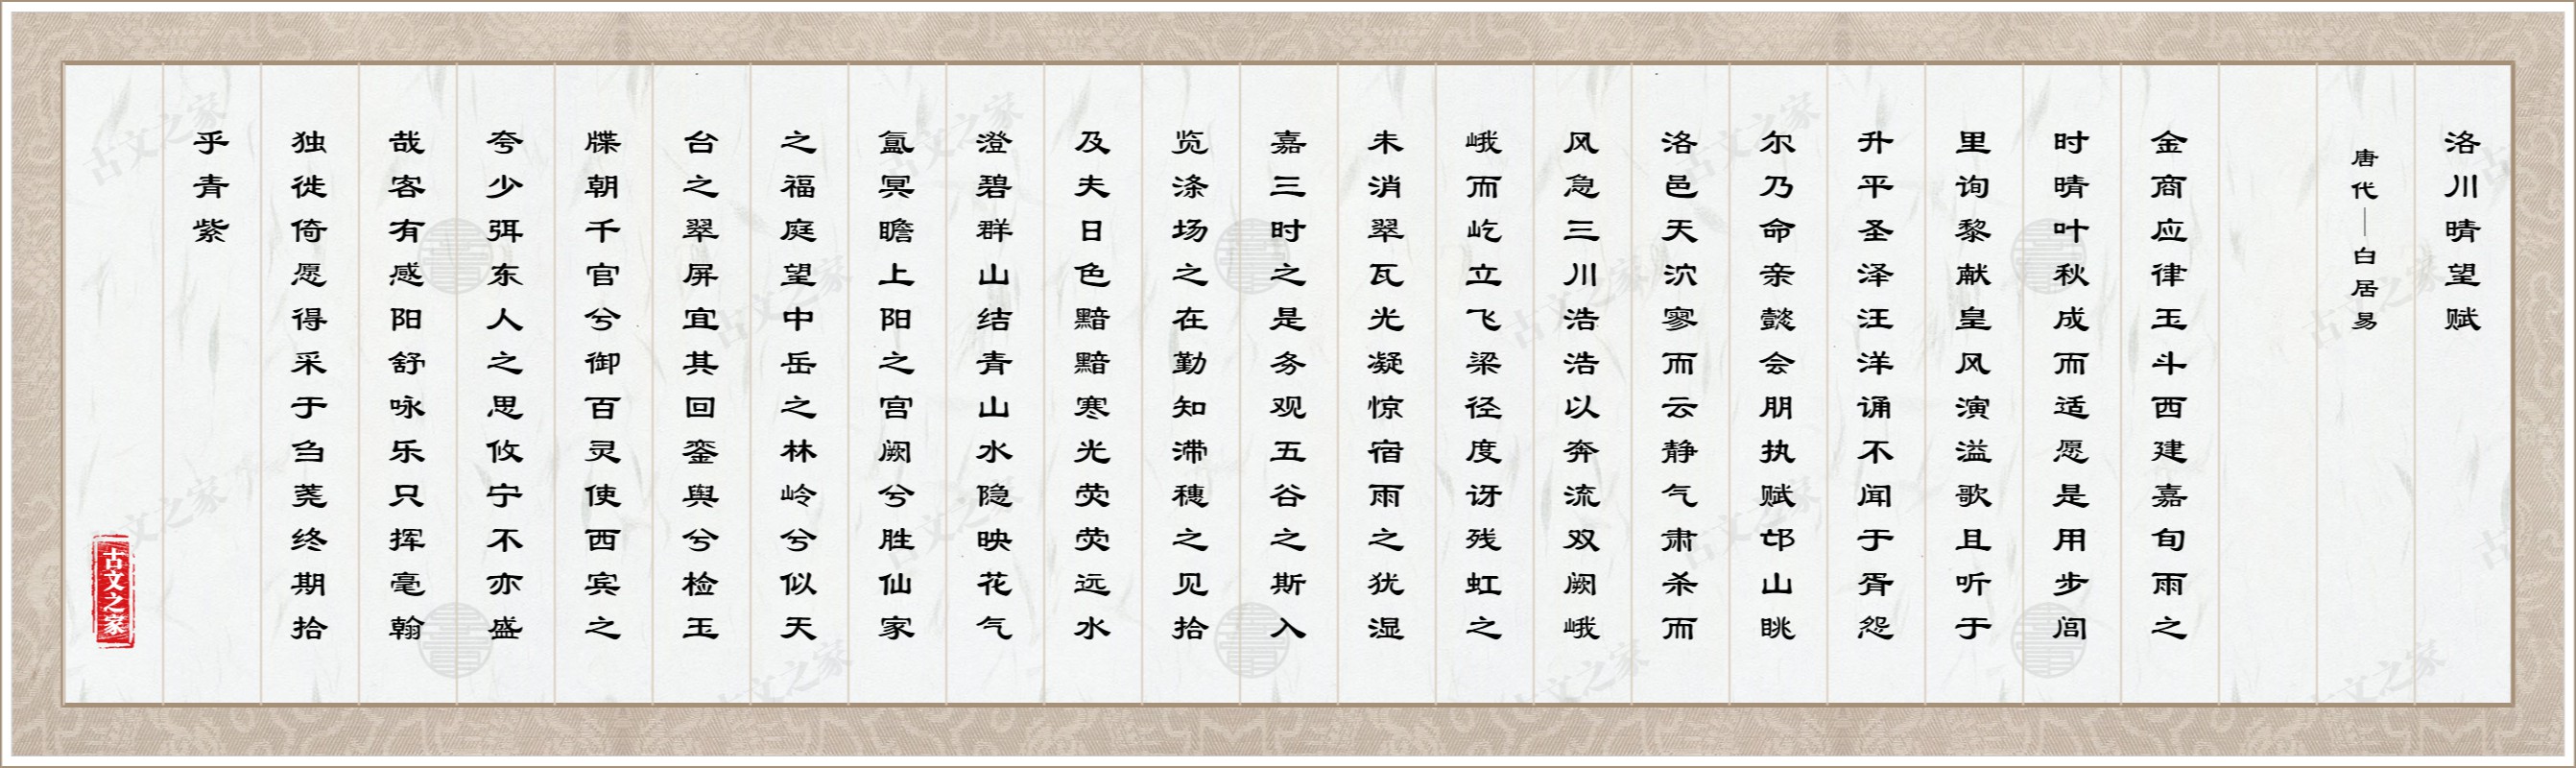 洛川晴望赋
唐代—白居易
金商应律玉斗西建嘉旬雨之
时晴叶秋成而适愿是用步闾
里询黎献皇风演溢歌且听于
升平圣泽汪洋诵不闻于胥怨
尔乃命亲懿会朋执赋邙山眺
洛邑天泬寥而云静气肃杀而
风急三川浩浩以奔流双阙峨
峨而屹立飞梁径度讶残虹之
未消翠瓦光凝惊宿雨之犹湿
嘉三时之是务观五谷之斯入
览涤场之在勤知滞穗之见拾
及夫日色黯黯寒光荧荧远水
澄碧群山结青山水隐映花气
氤冥瞻上阳之宫阙兮胜仙家
之福庭望中岳之林岭兮似天
台之翠屏宜其回銮舆兮检玉
牒朝千官兮御百灵使西宾之
夸少弭东人之思攸宁不亦盛
哉客有感阳舒咏乐只挥毫翰
独徙倚愿得采于刍荛终期拾
乎青紫
古文之家